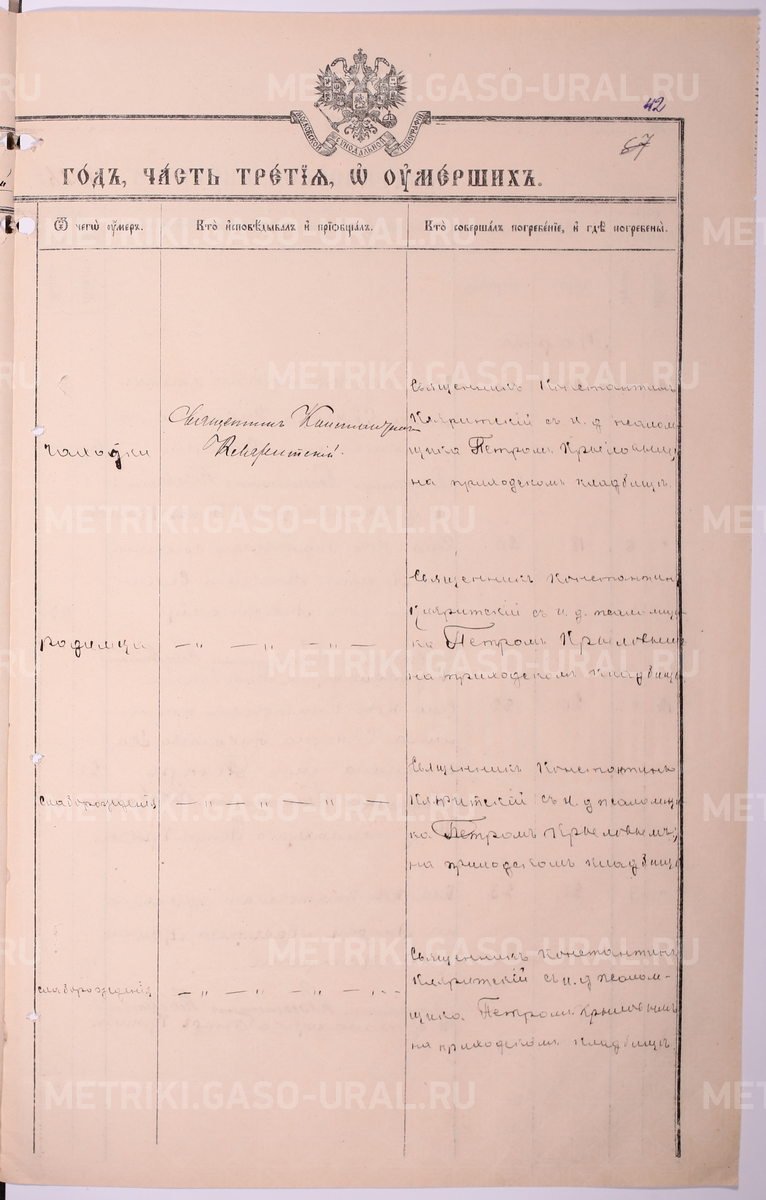 METRIKI.GASO-URAL.RU
42
67
МОСКОВСКОЙ СѴНОДАЛЬНОЙ ТИПОГРАФІИ
ГО́ДЪ, ЧА́СТЬ ТРЕ́ТІѦ, Ѡ ОУМЕ́РШИХЪ.
Ѿ чегѡ̀ оу́меръ.
Кто̀ и҆сповѣ́дывалъ и҆ прїѡбща́лъ.
Кто̀ соверша́лъ погребе́нїе, и҆ гдѣ̀ погребены̀.
чахотки
Священникъ Константинъ
Кляритскій.
Священникъ Константинъ
Кляритскій съ и. д псалом-
щика Петромъ Крыловымъ
на приходскомъ кладбищѣ.
METRIKI.GASO-URAL.RU
родимца
— „ — „ — „ —
Священникъ Константинъ
Кляритскій съ и. д. псаломщи-
ка Петромъ Крыловымъ
на приходскомъ кладбищѣ
METRIKI.GASO-URAL.RU
слаборожденія
— „ — „ — „ —
Священникъ Константинъ
Кляритскій съ и. д псаломщи-
ка Петромъ Крыловымъ,
на приходскомъ кладбищѣ
METRIKI.GASO-URAL.RU
слаборожденія
— „ — „ — „ —
Священникъ Константинъ
Кляритскій съ и. д псалом-
щика Петромъ Крыловымъ
на приходскомъ кладбищѣ
METRIKI.GASO-URAL.RU